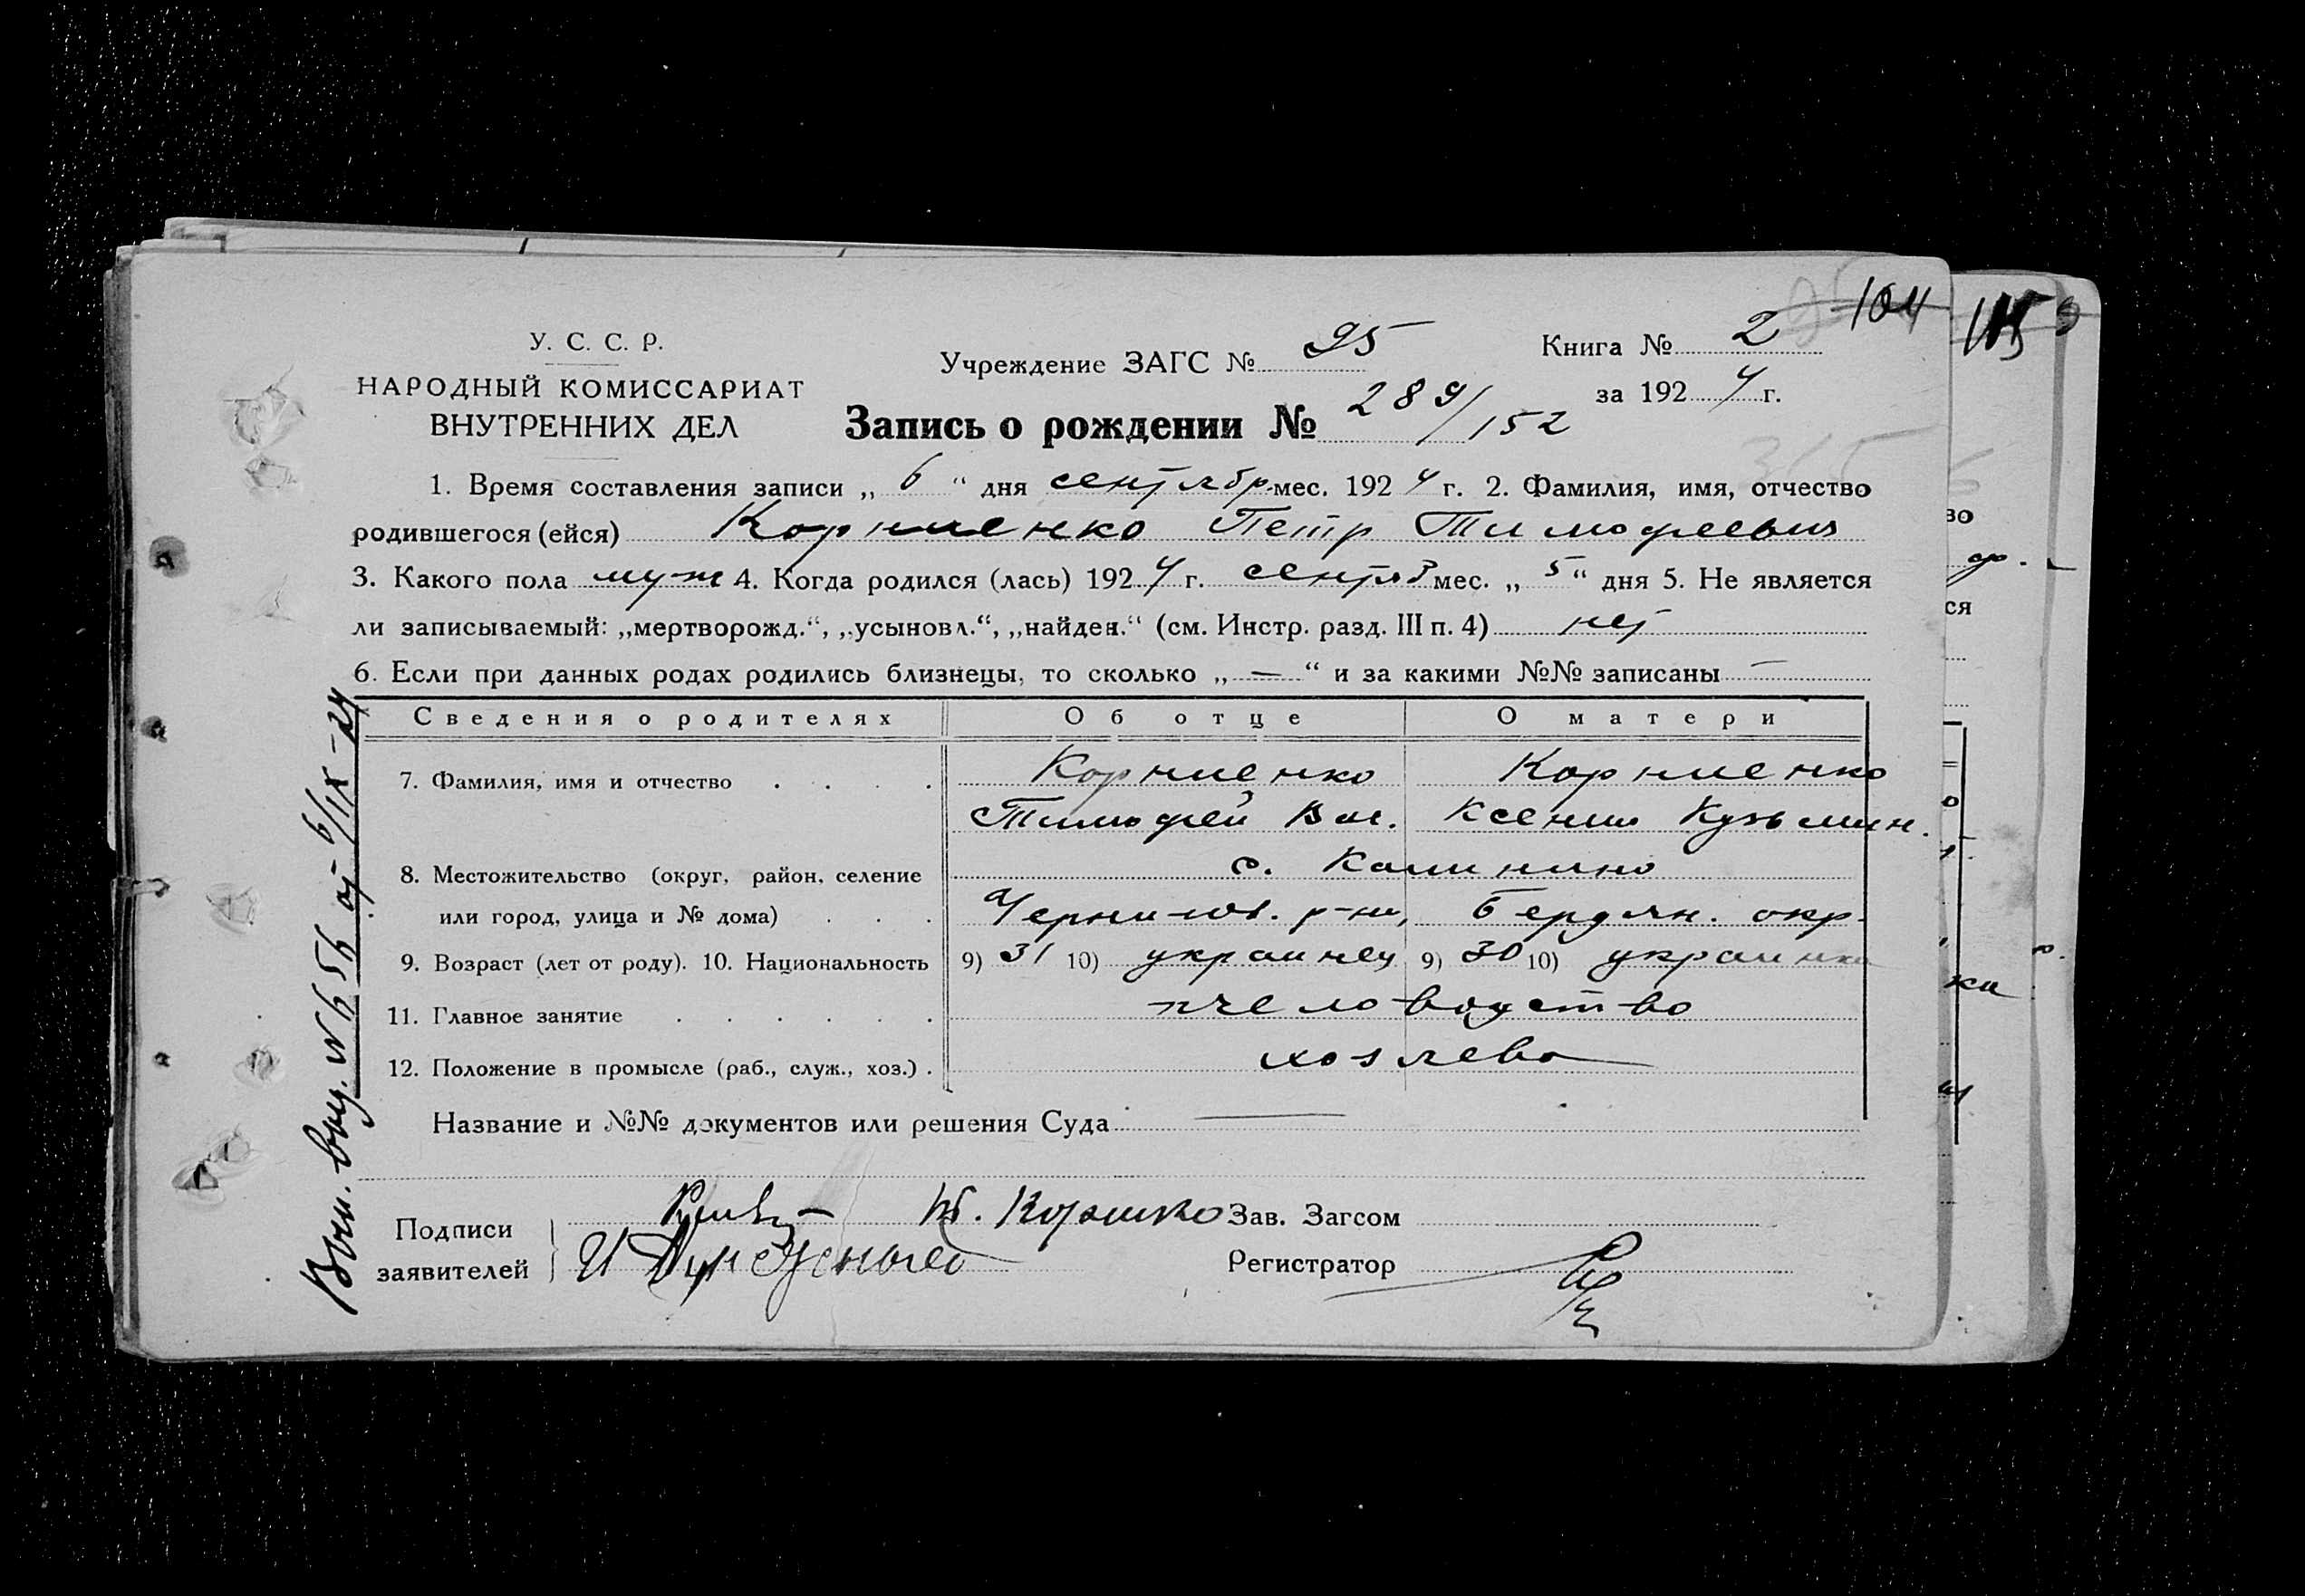 104
115
У. С. С. Р.
НАРОДНЫЙ КОМИССАРИАТ
ВНУТРЕННИХ ДЕЛ
Учреждение ЗАГС № 95
Книга № 2
за 1924 г.
Запись о рождении № 289/152
1. Время составления записи „ 6 “ дня сентябр. мес. 1924 г. 2. Фамилия, имя, отчество
родившегося (ейся) Корниенко Петр Тимофеевич
3. Какого пола муж 4. Когда родился (лась) 1924 г. сентяб мес. „ 5 “ дня 5. Не является
ли записываемый: „мертворожд.“, „усыновл.“, „найден.“ (см. Инстр. разд. III п. 4) нет
6. Если при данных родах родились близнецы, то сколько „ — “ и за какими №№ записаны —
Сведения о родителях Об отце О матери
7. Фамилия, имя и отчество . . . . Корниенко Корниенко
Тимофей Вас. Ксения Кузьмин.
8. Местожительство (округ, район, селение с. Калинино
или город, улица и № дома) . . . Чернигов. р-на, Бердян. окр.
9. Возраст (лет от роду). 10. Национальность 9) 31 10) украинец 9) 30 10) украинка
11. Главное занятие . . . . . . пчеловодство
12. Положение в промысле (раб., служ., хоз.) . хозяева
Название и №№ документов или решения Суда —
Подписи
заявителей
Зав. Загсом
Регистратор
Вып. выд. № 56 от 6/IX-24